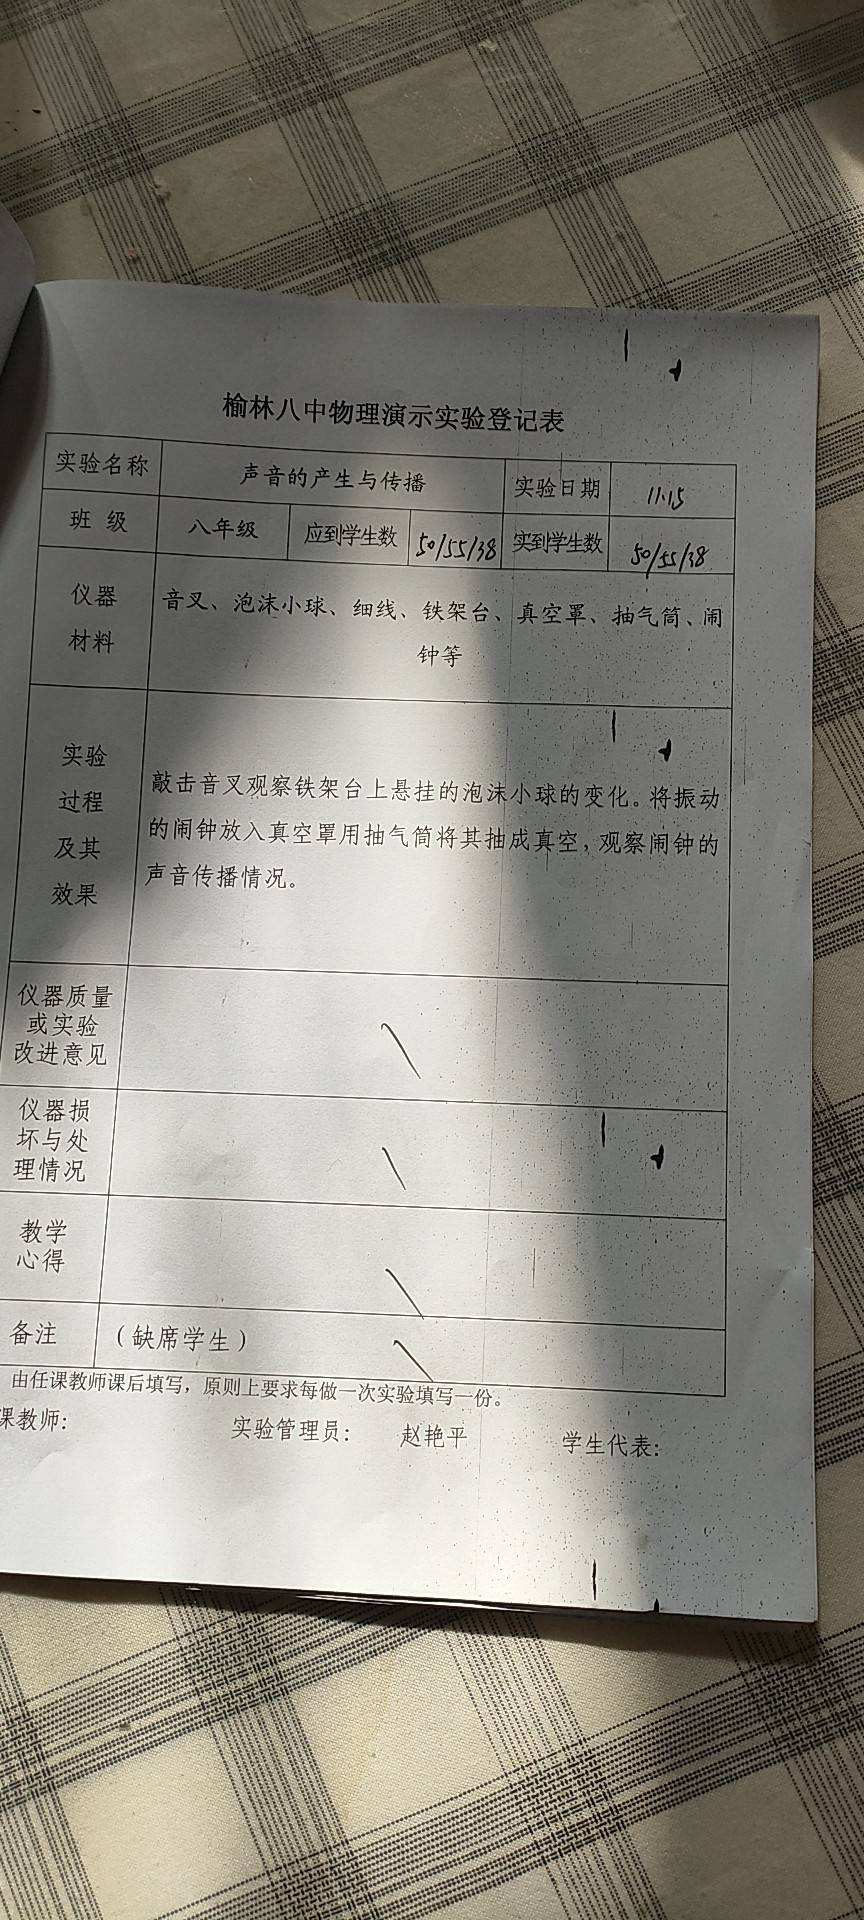 榆林八中物理演示实验登记表
实验名称 声音的产生与传播 实验日期 11.15
班 级 八年级 应到学生数 50/55/38 实到学生数 50/55/38
仪器
材料
音叉、泡沫小球、细线、铁架台、真空罩、抽气筒、闹
钟等
实验
过程
及其
效果
敲击音叉观察铁架台上悬挂的泡沫小球的变化。将振动
的闹钟放入真空罩用抽气筒将其抽成真空，观察闹钟的
声音传播情况。
仪器质量
或实验
改进意见
仪器损
坏与处
理情况
教学
心得
备注 （缺席学生）
由任课教师课后填写，原则上要求每做一次实验填写一份。
课教师： 实验管理员： 赵艳平 学生代表：